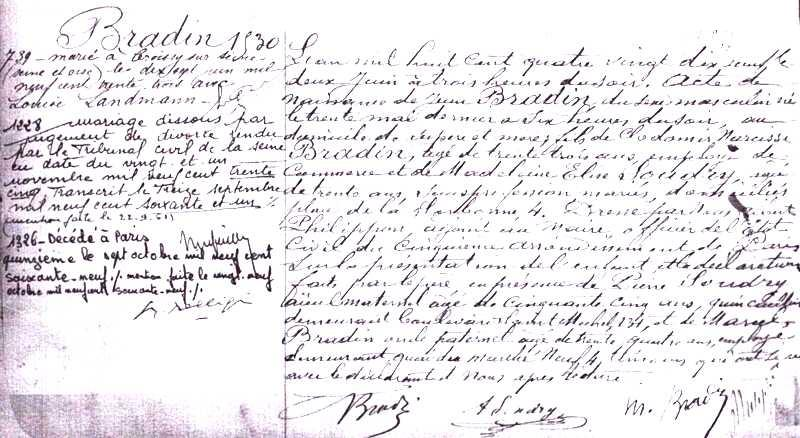 Bradin 1930
739 - marié à Croissy sur Seine
(Seine et Oise) le dix sept juin mil
neuf cent trente trois avec
Louise Landmann
1228 mariage dissous par
jugement de divorce rendu
par le Tribunal civil de la Seine
en date du vingt et un
novembre mil neuf cent trente
cinq Transcrit le treize septembre
mil neuf cent soixante et un ./.
mention faite le 22.9.61
1326 - Décédé à Paris
quinzième le sept octobre mil neuf cent
soixante-neuf ./. mention faite le vingt neuf
octobre mil neuf cent soixante-neuf ./.
L'an mil huit cent quatre vingt dix neuf le
deux Juin à trois heures du soir. Acte de
naissance de Jean Bradin, du sexe masculin né
le trente mai dernier à six heures du soir, au
domicile de ses père et mère, fils de Clodomir Narcisse
Bradin, âgé de trente trois ans, employé de
Commerce et de Madeleine Elise Soudry, âgée
de trente ans, sans profession mariés, domiciliés
place de la Sorbonne, 4. Dressé par nous
Philippon adjoint au Maire, officier de l'état
Civil du Cinquième arrondissement de Paris
sur la présentation de l'enfant et la déclaration
faite par le père en présence de Pierre Soudry
aïeul maternel âgé de Cinquante Cinq ans,
demeurant boulevard Saint Michel, 131, et de Marcel
Bradin oncle paternel âgé de trente quatre ans, employé
demeurant quai du marché Neuf, 4, témoins qui ont signé
avec le déclarant et Nous après lecture.
Bradin A Soudry M. Bradin